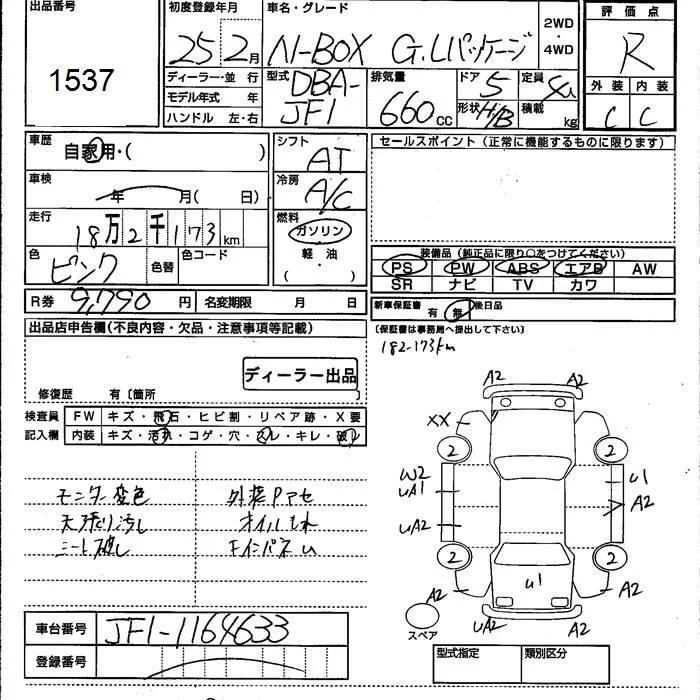 出品番号
1537
初度登録年月
25 2月
車名・グレード
N-BOX G.Lパッケージ
2WD
・
4WD
評価点
R
外装 内装
C C
ディーラー・並行
モデル年式 年
ハンドル 左・右
型式
DBA-
JF1
排気量
660cc
ドア 5
形状 H/B
定員 4人
積載 kg
車歴
自家用・( )
シフト
AT
セールスポイント (正常に機能するものに限ります)
車検
年 月( 日)
冷房
A/C
走行
18万2千173km
燃料
ガソリン
軽・油
( )
色
ピンク
色替
色コード
装備品(純正品に限り○をつけてください)
PS PW ABS エアB AW
SR ナビ TV カワ
R券 9,790円 名変期限 月 日
新車保証書 有 無 後日品
〔保証書は事務局へ提出して下さい〕
182-173km
出品店申告欄(不良内容・欠品・注意事項等記載)
ディーラー出品
修復歴 有〔箇所 〕
検査員
記入欄
FW キズ・飛石・ヒビ割・リペア跡・X要
内装 キズ・汚れ・コゲ・穴・スレ・キレ・破れ
モニター変色 外装Pアセ
天張り汚し オイルもれ
シート破し FインパネU
A2 A2
XX
2 2
W2
UA1 U1
A2
UA2
2 2
U1
A2 A2
UA2 A2
スペア
車台番号 JF1-1164633
登録番号
型式指定 類別区分